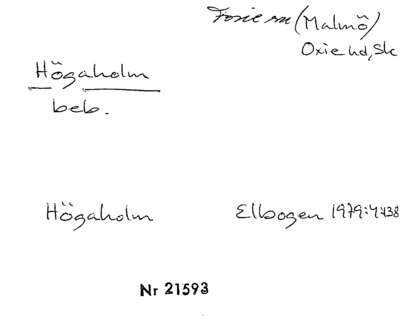 Fosie sn (Malmö)
Oxie hd, Sk
Högaholm
beb.
Högaholm Elbogen 1979:4 438
Nr 21593